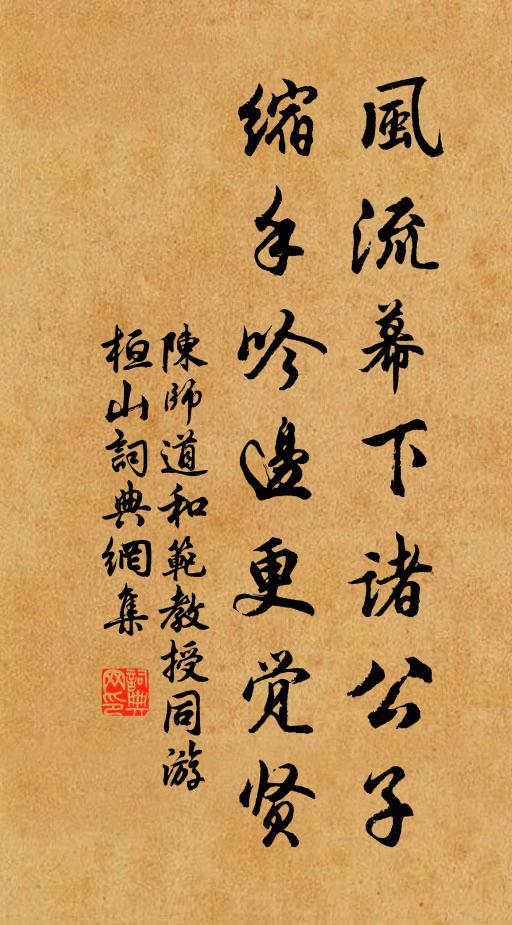 風流幕下諸公子
縮手吟邊更觉贤
陳師道和範教授同游
桓山詞典網集
詞典网印